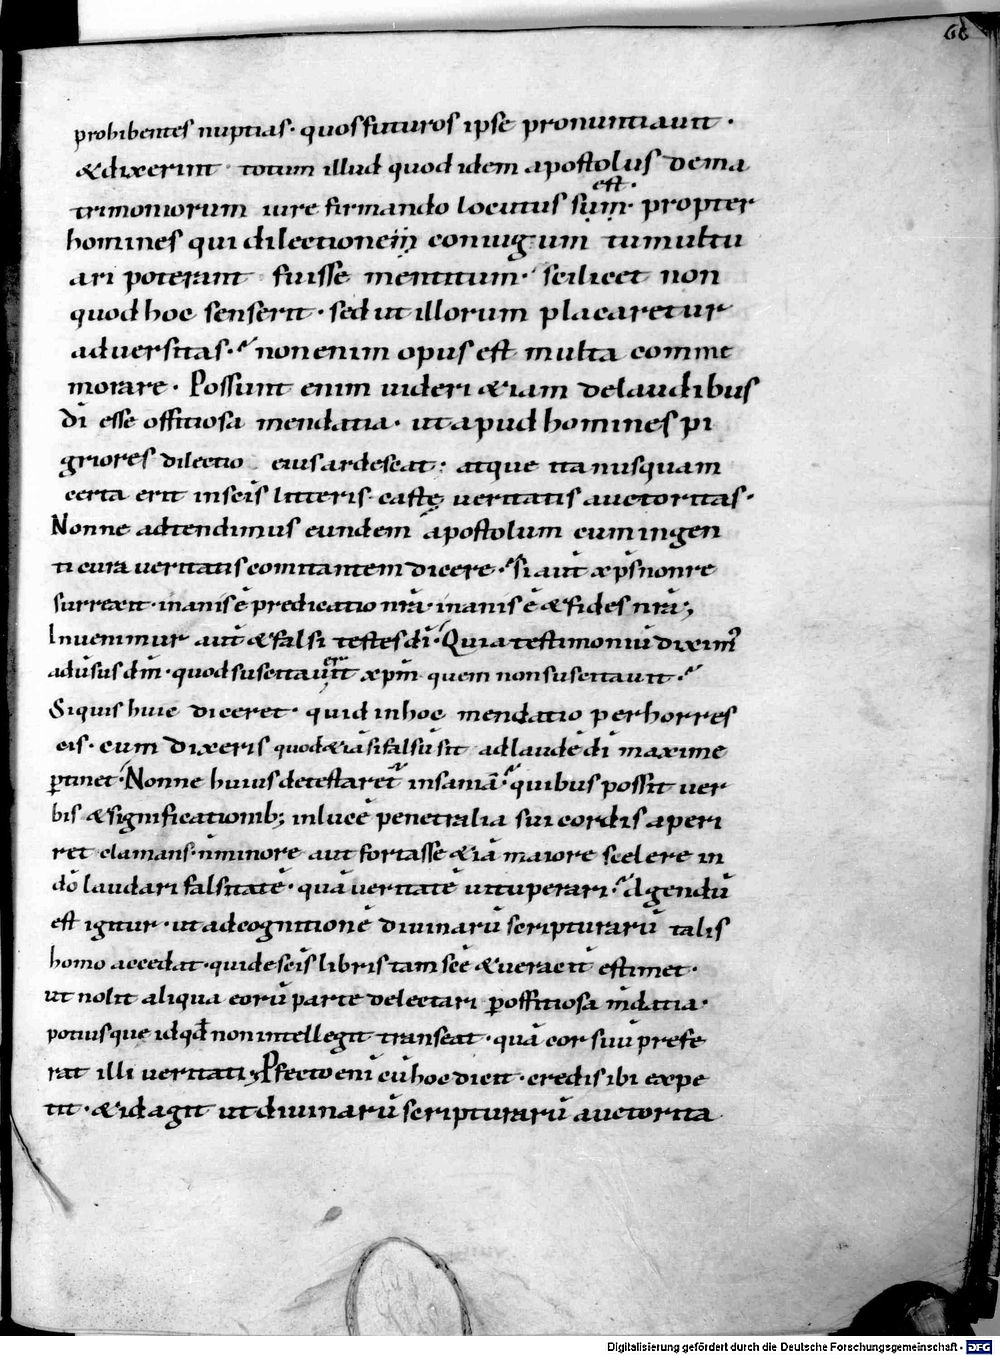 66
prohibentes nuptias · quos futuros ipse pronuntiauit ·
&dixerint totum illud quod idem apostolus de ma
est ·
trimoniorum iure firmando locutus sum · propter
homines qui dilectionem coniugum tumultu
ari poterant fuisse mentitum · scilicet non
quod hoc senserit · sed ut illorum placaretur
aduersitas · non enim opus est multa comme
morare · Possunt enim uideri &iam de laudibus
dī esse offitiosa mendatia · ut apud homines pi
griores dilectio eius ardescat : atque ita nusquam
certa erit in scīs litteris castę ueritatis auctoritas ·
Nonne adtendimus eundem apostolum cum ingen
ti cura ueritatis comitantem dicere · si aūt xp̄s non re
surrexit · inanis ē predicatio nr̄a · inanis ē & fides nr̄a;
Inuenimur aūt & falsi testes dī · Quia testimoniū diximꝰ
adūsus dm̄ · quod suscitauit xp̄m quem non suscitauit ·
Siquis huic diceret · quid in hoc mendatio perhorres
cis · cum dixeris quod &iā si falsū sit ad laudē dī maxime
ꝑtinet · Nonne huius detestaret᷑ insaniā · quibus possit uer
bis & significationib; in lucē penetralia sui cordis aperi
ret clamans · n̄ minore aut fortasse &iā maiore scelere in
dō laudari falsitatē · quā ueritatē uituperari · Agendū
est igitur · ut ad cognitionē diuinarū scripturarū talis
homo accedat · qui de scīs libris tam scē & ueracit᷑ estimet ·
ut nolit aliqua eorū parte delectari ꝑ offitiosa m̄datia ·
potiusque id qd̄ non intellegit transeat · quā cor suū prefe
rat illi ueritati; Pfecto enī cū hoc dicit · credi sibi expe
tit · & id agit ut diuinarū scripturarū auctorita
Digitalisierung gefördert durch die Deutsche Forschungsgemeinschaft - DFG